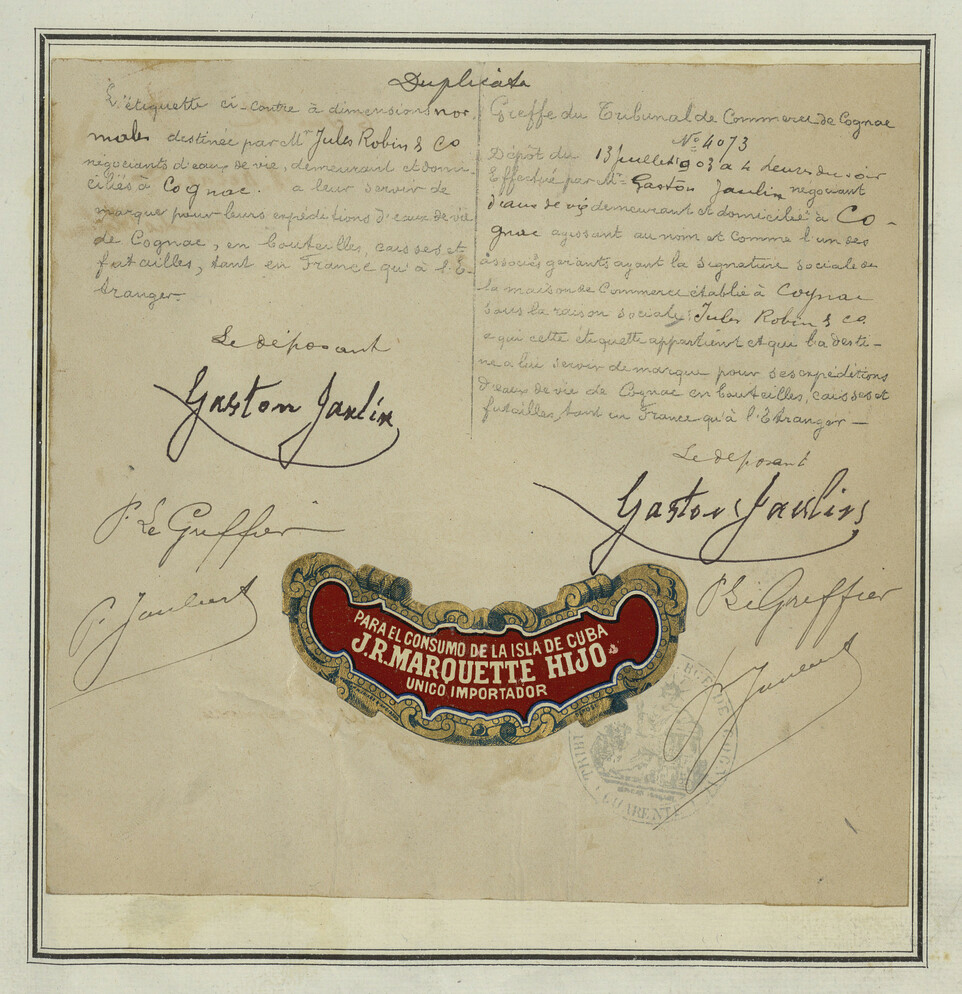 Duplicata
L'étiquette ci-contre à dimensions nor
males destinée par Mr Jules Robin & Co
négociants d'eaux de vie, demeurant et domi-
ciliés à Cognac. a leur servir de
marque pour leurs expéditions d'eaux de vie
de Cognac, en bouteilles, caisses et
futailles, tant en France qu'à l'E-
tranger.
Le déposant
Gaston Jaulin
P. Le Greffier
P. Joubert
Greffe du Tribunal de Commerce de Cognac
No 4073
Dépôt du 13 juillet 1903 à 4 heures du soir
Effectué par Mr Gaston Jaulin negociant
d'eaux de vie demeurant et domicilié à Co-
gnac agissant au nom et comme l'un des
associés gérants ayant la signature sociale de
la maison de Commerce établie à Cognac
sous la raison sociale: Jules Robin & Co.
a qui cette étiquette appartient et qui l'a desti-
ne a lui servir de marque pour ses expéditions
d'eaux de vie de Cognac en bouteilles, caisses et
futailles, tant en France qu'à l'Etranger —
Le déposant
Gaston Jaulin
P Le Greffier
P. Joubert
PARA EL CONSUMO DE LA ISLA DE CUBA
J.R.MARQUETTE HIJO
UNICO IMPORTADOR